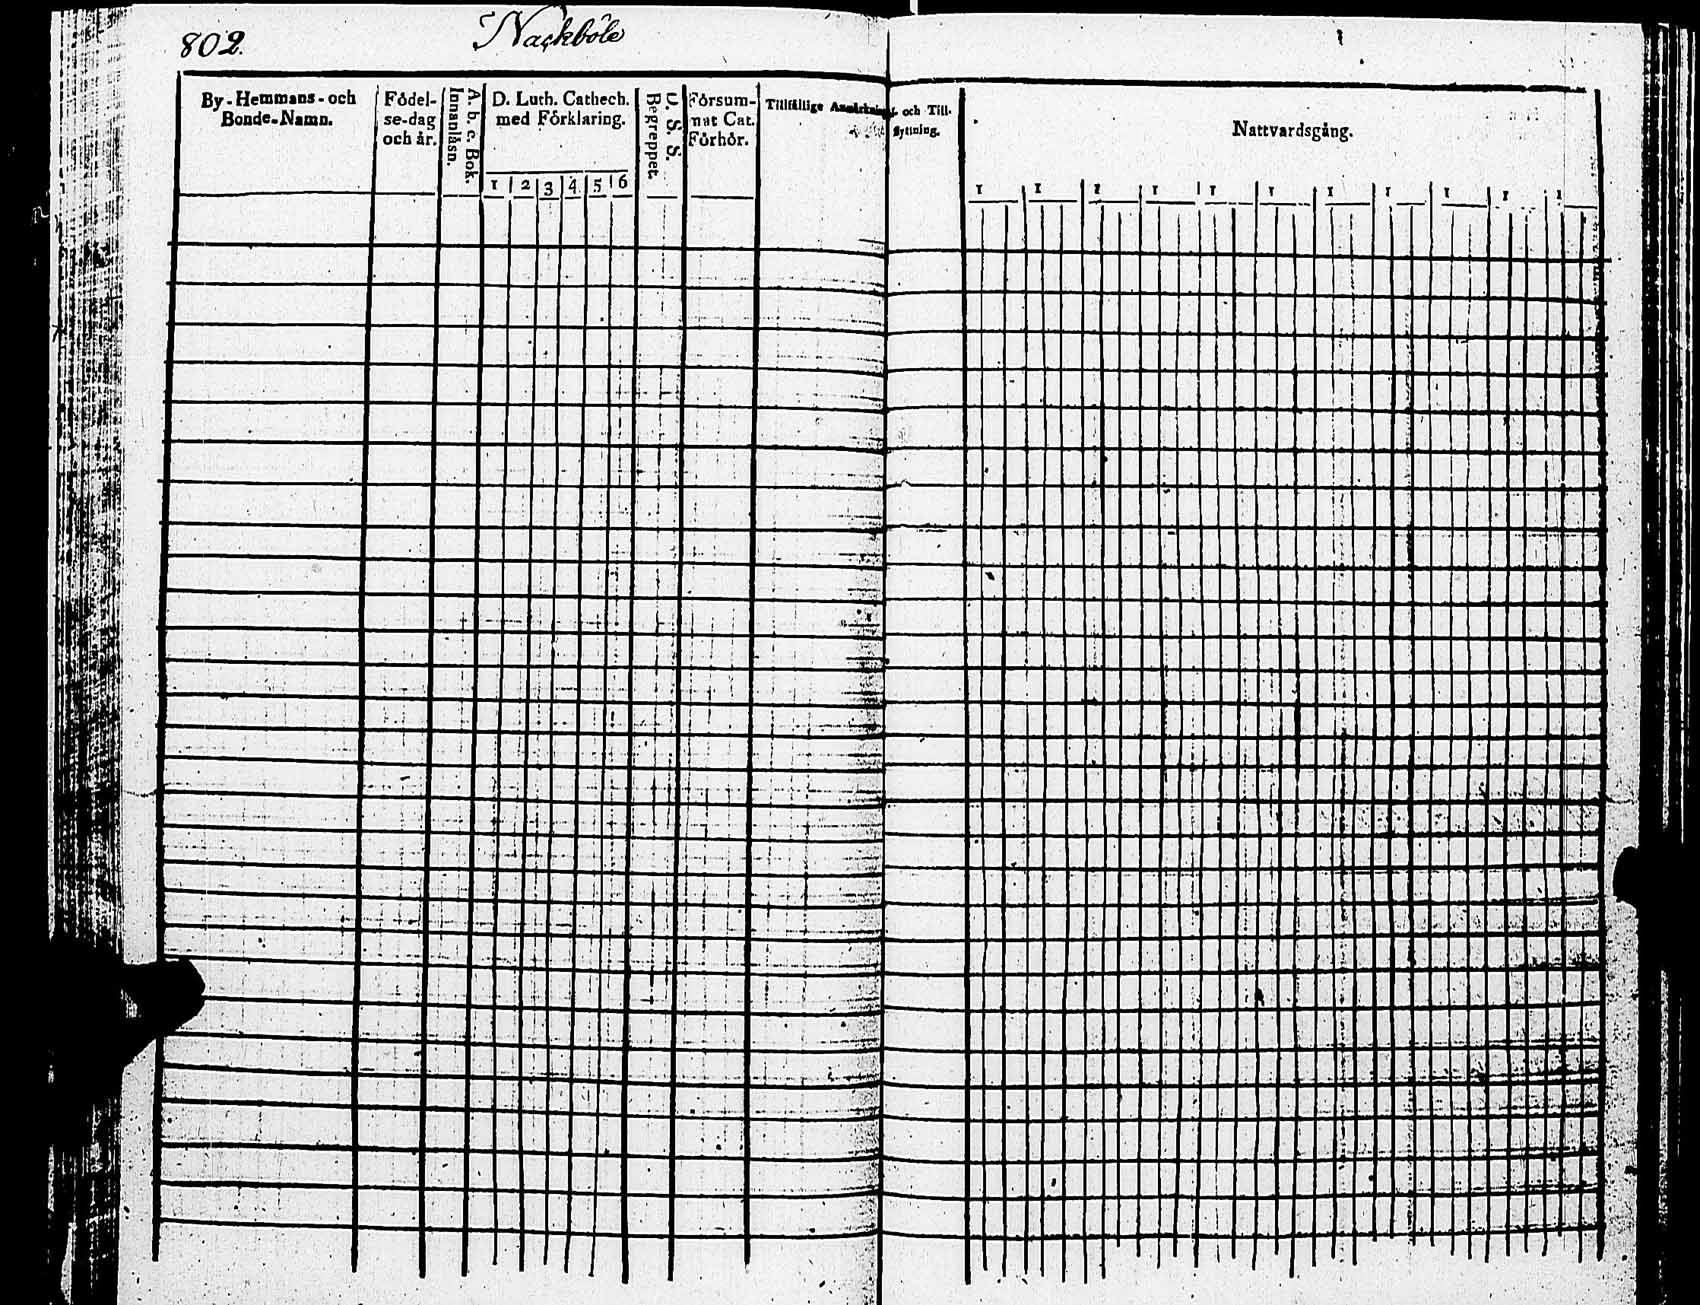 802.
Nackböle
By-Hemmans-och
Bonde-Namn.
Födel-
se-dag
och år.
A. b. c. Bok.
Innanläsn.
D. Luth. Cathech.
med Förklaring.
1 2 3 4 5 6
D. S. S.
Begreppet.
Försum-
mat Cat.
Förhör.
Tillfällige Anmärkning. och Till-
flyttning.
Nattvardsgång.
1 1 1 1 1 1 1 1 1 1 1